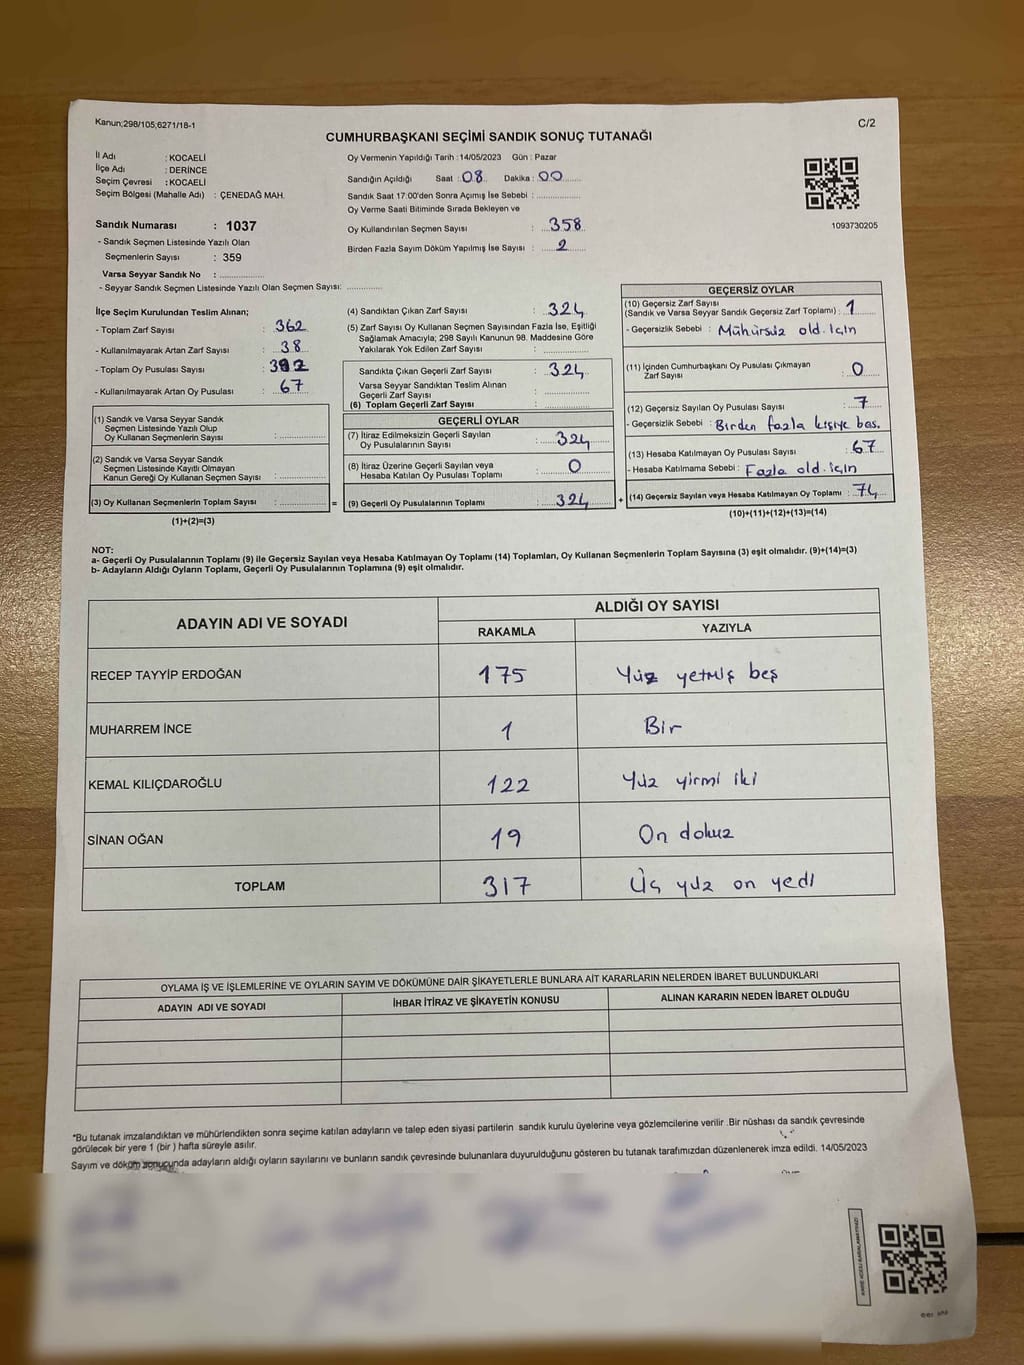 Kanun;298/105,6271/18-1
C/2
CUMHURBAŞKANI SEÇİMİ SANDIK SONUÇ TUTANAĞI
İl Adı : KOCAELİ
İlçe Adı : DERİNCE
Seçim Çevresi : KOCAELİ
Seçim Bölgesi (Mahalle Adı) : ÇENEDAĞ MAH.
Sandık Numarası : 1037
- Sandık Seçmen Listesinde Yazılı Olan
Seçmenlerin Sayısı : 359
Varsa Seyyar Sandık No : ....................
- Seyyar Sandık Seçmen Listesinde Yazılı Olan Seçmen Sayısı: ...............
Oy Vermenin Yapıldığı Tarih :14/05/2023 Gün : Pazar
Sandığın Açıldığı Saat : 08 Dakika : 00
Sandık Saat 17:00'den Sonra Açımış İse Sebebi : ....................
Oy Verme Saati Bitiminde Sırada Bekleyen ve
Oy Kullandırılan Seçmen Sayısı : 358
Birden Fazla Sayım Döküm Yapılmış İse Sayısı : 2
1093730205
İlçe Seçim Kurulundan Teslim Alınan;
- Toplam Zarf Sayısı : 362
- Kullanılmayarak Artan Zarf Sayısı : 38
- Toplam Oy Pusulası Sayısı :
- Kullanılmayarak Artan Oy Pusulası : 67
(1) Sandık ve Varsa Seyyar Sandık
Seçmen Listesinde Yazılı Olup
Oy Kullanan Seçmenlerin Sayısı : ...............
(2) Sandık ve Varsa Seyyar Sandık
Seçmen Listesinde Kayıtlı Olmayan
Kanun Gereği Oy Kullanan Seçmen Sayısı : ...............
(3) Oy Kullanan Seçmenlerin Toplam Sayısı : ............... =
(1)+(2)=(3)
(4) Sandıktan Çıkan Zarf Sayısı : 324
(5) Zarf Sayısı Oy Kullanan Seçmen Sayısından Fazla İse, Eşitliği
Sağlamak Amacıyla; 298 Sayılı Kanunun 98. Maddesine Göre
Yakılarak Yok Edilen Zarf Sayısı : ...............
Sandıkta Çıkan Geçerli Zarf Sayısı : 324
Varsa Seyyar Sandıktan Teslim Alınan
Geçerli Zarf Sayısı : ...............
(6) Toplam Geçerli Zarf Sayısı : ...............
GEÇERLİ OYLAR
(7) İtiraz Edilmeksizin Geçerli Sayılan
Oy Pusulalarının Sayısı : 324
(8) İtiraz Üzerine Geçerli Sayılan veya
Hesaba Katılan Oy Pusulası Toplamı : 0
(9) Geçerli Oy Pusulalarının Toplamı : 324 +
GEÇERSİZ OYLAR
(10) Geçersiz Zarf Sayısı
(Sandık ve Varsa Seyyar Sandık Geçersiz Zarf Toplamı) : 1
- Geçersizlik Sebebi : Mühürsüz old. için
(11) İçinden Cumhurbaşkanı Oy Pusulası Çıkmayan
Zarf Sayısı : 0
(12) Geçersiz Sayılan Oy Pusulası Sayısı : 7
- Geçersizlik Sebebi : Birden fazla kişiye bas.
(13) Hesaba Katılmayan Oy Pusulası Sayısı : 67
- Hesaba Katılmama Sebebi : Fazla old. için
(14) Geçersiz Sayılan veya Hesaba Katılmayan Oy Toplamı : 74
(10)+(11)+(12)+(13)=(14)
NOT:
a- Geçerli Oy Pusulalarının Toplamı (9) ile Geçersiz Sayılan veya Hesaba Katılmayan Oy Toplamı (14) Toplamları, Oy Kullanan Seçmenlerin Toplam Sayısına (3) eşit olmalıdır. (9)+(14)=(3)
b- Adayların Aldığı Oyların Toplamı, Geçerli Oy Pusulalarının Toplamına (9) eşit olmalıdır.
ADAYIN ADI VE SOYADI
ALDIĞI OY SAYISI
RAKAMLA YAZIYLA
RECEP TAYYİP ERDOĞAN 175 Yüz yetmiş beş
MUHARREM İNCE 1 Bir
KEMAL KILIÇDAROĞLU 122 Yüz yirmi iki
SİNAN OĞAN 19 On dokuz
TOPLAM 317 Üç yüz on yedi
OYLAMA İŞ VE İŞLEMLERİNE VE OYLARIN SAYIM VE DÖKÜMÜNE DAİR ŞİKAYETLERLE BUNLARA AİT KARARLARIN NELERDEN İBARET BULUNDUKLARI
ADAYIN ADI VE SOYADI İHBAR İTİRAZ VE ŞİKAYETİN KONUSU ALINAN KARARIN NEDEN İBARET OLDUĞU
*Bu tutanak imzalandıktan ve mühürlendikten sonra seçime katılan adayların ve talep eden siyasi partilerin sandık kurulu üyelerine veya gözlemcilerine verilir .Bir nüshası da sandık çevresinde
görülecek bir yere 1 (bir ) hafta süreyle asılır.
Sayım ve döküm sonucunda adayların aldığı oyların sayılarını ve bunların sandık çevresinde bulunanlara duyurulduğunu gösteren bu tutanak tarafımızdan düzenlenerek imza edildi. 14/05/2023